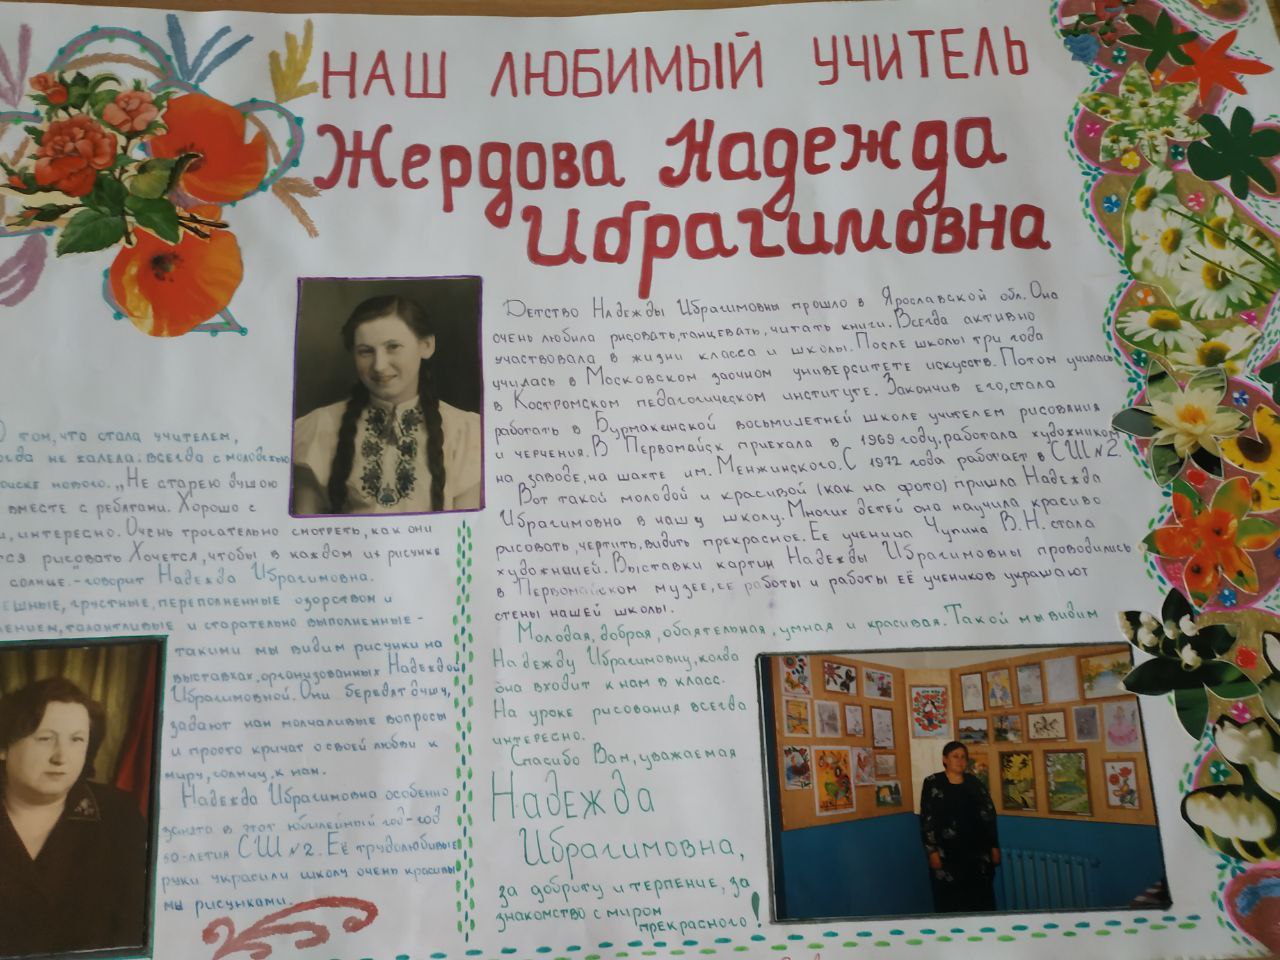 НАШ ЛЮБИМЫЙ УЧИТЕЛЬ
Жердова Надежда
Ибрагимовна
Детство Надежды Ибрагимовны прошло в Ярославской обл. Она
очень любила рисовать, танцевать, читать книги. Всегда активно
участвовала в жизни класса и школы. После школы три года
училась в Московском заочном университете искусств. Потом училась
в Костромском педагогическом институте. Закончив его, стала
работать в Бурмакинской восьмилетней школе учителем рисования
и черчения. В Первомайск приехала в 1969 году, работала художником
на заводе, на шахте им. Менжинского. С 1972 года работает в СШ №2.
Вот такой молодой и красивой (как на фото) пришла Надежда
Ибрагимовна в нашу школу. Многих детей она научила красиво
рисовать, чертить, видить прекрасное. Ее ученица Чупина В.Н. стала
художницей. Выставки картин Надежды Ибрагимовны проводились
в Первомайском музее, её работы и работы её учеников украшают
стены нашей школы.
Молодая, добрая, обаятельная, умная и красивая. Такой мы видим
Надежду Ибрагимовну, когда
она входит к нам в класс.
На уроке рисования всегда
интересно.
Спасибо Вам, уважаемая
Надежда
Ибрагимовна,
за доброту и терпение, за
знакомство с миром
прекрасного!
О том, что стала учителем,
не жалела: всегда с молодежью
нового. „Не старею душою
вместе с ребятами. Хорошо с
интересно. Очень трогательно смотреть, как они
рисовать. Хочется, чтобы в каждом их рисунке
солнце."- говорит Надежда Ибрагимовна.
грустные, переполненные озорством и
талантливые и старательно выполненные -
такими мы видим рисунки на
выставках, организованных Надеждой
Ибрагимовной. Они бередят душу,
задают нам молчаливые вопросы
и просто кричат о своей любви к
миру, солнцу, к нам.
Надежда Ибрагимовна особенно
занята в этот юбилейный год-год
50-летия СШ №2. Её трудолюбивые
руки украсили школу очень красивы
мы рисунками.